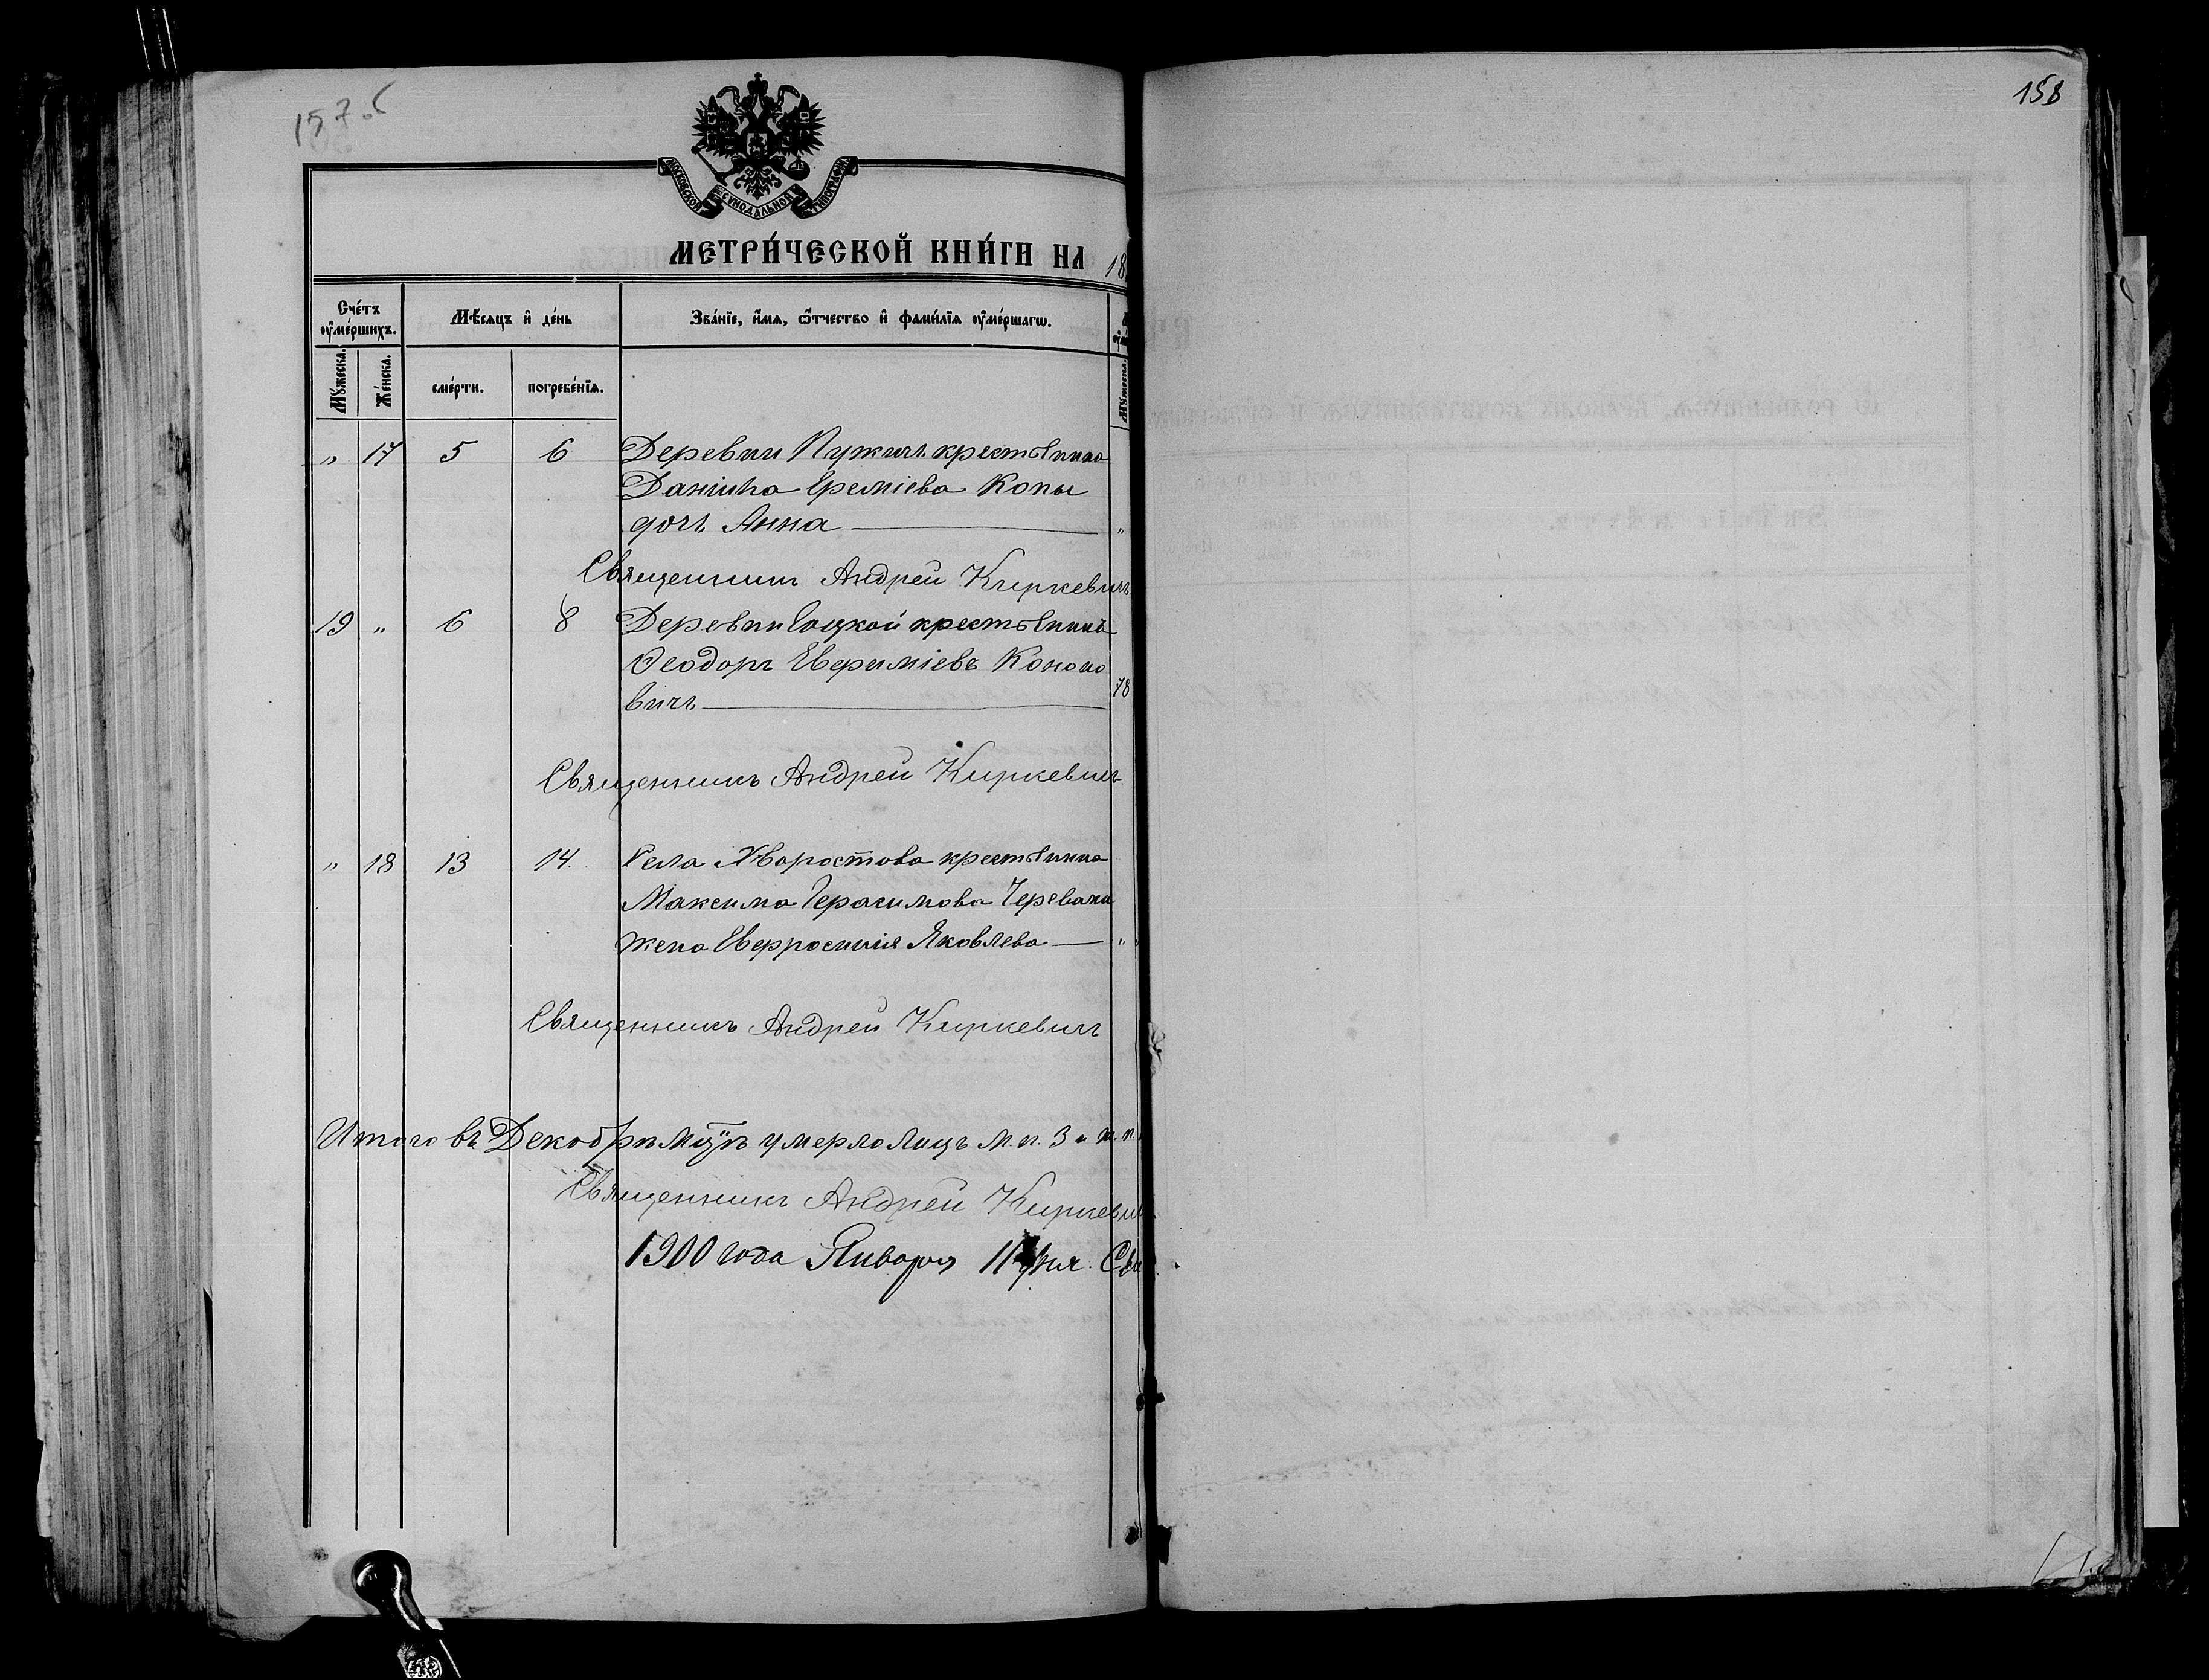 157.об
158
МОСКОВСКОЙ СѴНОДАЛЬНОЙ ТИПОГРАФІИ
МЕТРИ́ЧЕСКОЙ КНИ́ГИ НА 18
Сче́тъ оу҆ме́ршихъ.
Мѣ́сяцъ и҆ де́нь
Зва́нїе, и҆́мѧ, ѻ҆́тчество и҆ фамилїѧ оу҆ме́ршагѡ.
Мꙋ́жеска.
Же́нска.
сме́рти.
погребе́нїѧ.
Мꙋ́жеска.
„ 17 5 6 Деревни Пужичъ крестьянина
Даніила Ереміева Копы
дочь Анна „
Священникъ Андрей Киркевичъ
19 „ 6 8 Деревни Гоцкой крестьянинъ
Ѳеодоръ Евфиміевъ Конопо
вичъ 78
Священникъ Андрей Киркевичъ
„ 18 13 14 Села Хворостова крестьянина
Максима Герасимова Черевака
жена Евфросинія Яковлева „
Священникъ Андрей Киркевичъ
Итого въ Декабрѣ мцѣ умерло лицъ м. п. 3 и ж. п.
Священникъ Андрей Киркевич
1900 года Января 11 дня. Свя